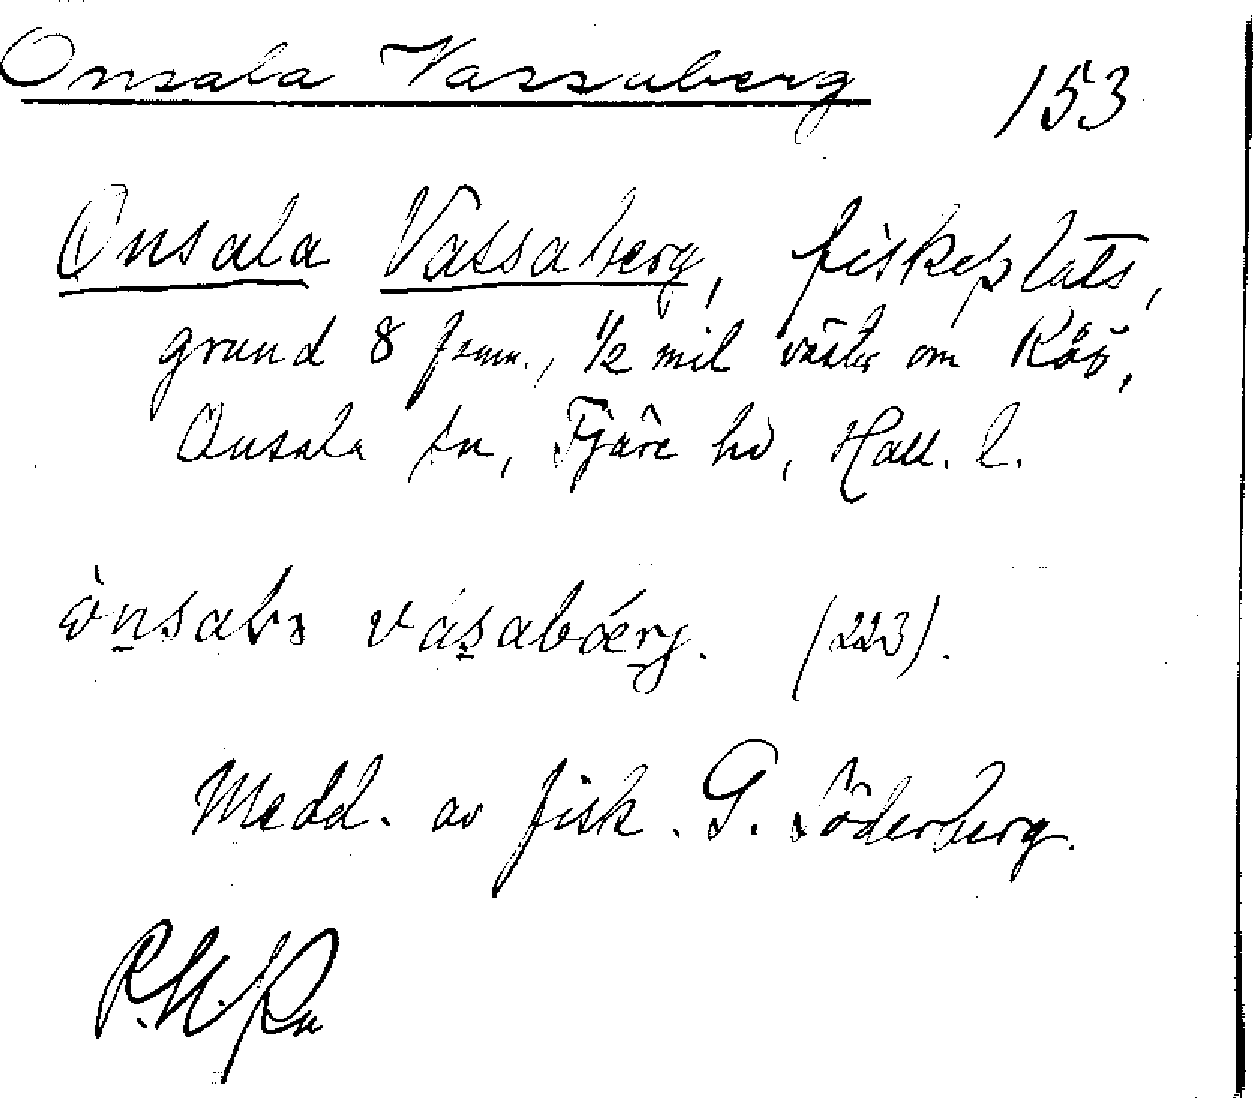 Onsala Vassaberg 153
Onsala Vassaberg, fiskeplats,
grund 8 famn., 1/2 mil väster om Röö,
Onsala sn, Fjäre hd, Hall. l.
ònsala vásabærj. (223).
Medd. av fisk. G. Söderberg.